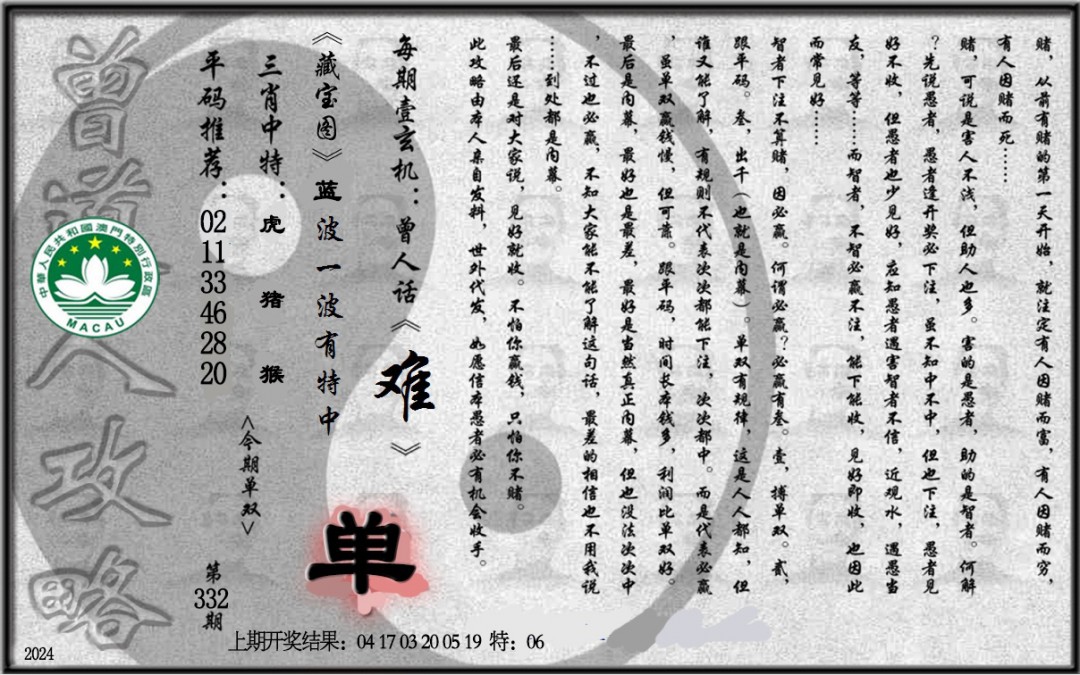 赌，从前有赌的第一天开始，就注定有人因赌而富，有人因赌而穷，
有人因赌而死……
赌，可说是害人不浅，但助人也多。害的是愚者，助的是智者。何解
？先说愚者，愚者逢开奖必下注，虽不知中不中，但也下注，愚者见
好不收，但愚者也少见好，应知愚者遇害智者不信，近观水，遇愚当
友，等等……而智者，不智必赢不注，能下能收，见好即收，也因此
而常见好……
智者下注不算赌，因必赢。何谓必赢？必赢有叁。壹，搏单双。贰，
跟平码。叁，出千（也就是内幕）。单双有规律，这是人人都知，但
谁又能了解，有规则不代表次次都能下注，次次都中。而是代表必赢
，虽单双赢钱慢，但可靠。跟平码，时间长本钱多，利润比单双好。
最后是内幕，最好也是最差，最好是当然真正内幕，但也没法次次中
，不过也必赢，不知大家能不能了解这句话，最差的相信也不用我说
……到处都是内幕。
最后还是对大家说，见好就收。不怕你赢钱，只怕你不赌。
此攻略由本人亲自发料，世外代发，如愿信本愚者必有机会收手。
每期壹玄机：曾人话《难》
《藏宝图》蓝波一波有特中
单
三肖中特：虎 猪 猴
<今期单双>
平码推荐：02 11 33 46 28 20
第332期
曾道人攻略
中華人民共和國澳門特別行政區
MACAU
上期开奖结果：04 17 03 20 05 19 特：06
2024